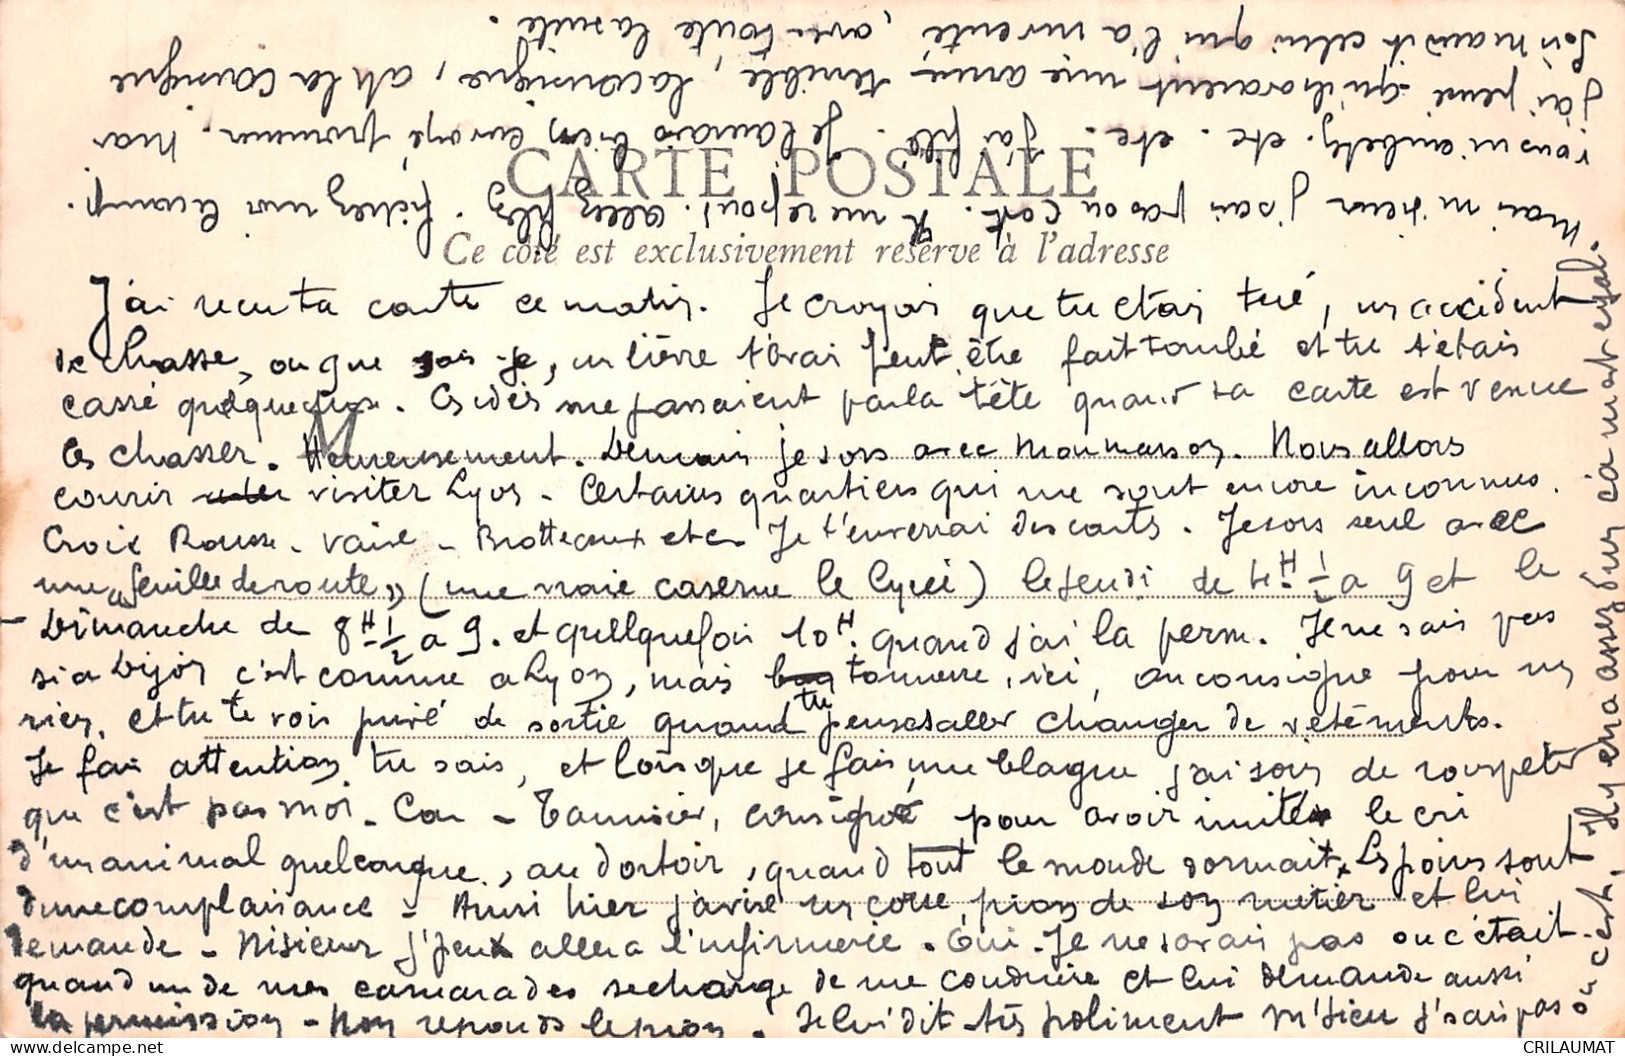 CARTE POSTALE
Ce côté est exclusivement réservé à l'adresse
J'ai recu ta carte ce matin. Je croyais que tu étais tué, un accident
de chasse, ou que sais-je, un lièvre t'avai peut être fait tombé et tu t'étais
cassé quelque chose. Ces idées me passaient par la tête quand ta carte est venue
les chasser. Heureusement. Demain je sors avec Mon
Nous allons
courir visiter Lyon - Certains quartiers qui me sont encore inconnus.
Croix Rousse - Vaise - Brotteaux etc - Je t'enverrai des carts. Je sors seul avec
une "feuille de route" (une vraie caserne le lycée) le jeudi de 4H 1/2 a 9 et le
- Dimanche de 8H 1/2 a 9. et quelquefois 10H. quand j'ai la perm. Je ne sais pas
si a Dijon c'est comme a Lyon, mais tonnerre, ici, on consigne pour un
rien, et tu te vois privé de sortie quand tu penses aller changer de vêtements.
Je fais attention tu sais, et lorsque je fais une blague j'ai soin de rouspéter
que c'est pas moi. Car - Tannisier, consigné pour avoir imité le cri
d'un animal quelconque, au dortoir, quand tout le monde dormait. Les pions sont
d'une complaisance - Ainsi hier j'avise un corse, pion de son metier et lui
demande - M'sieur j'peux aller a l'infirmerie. Oui. Je ne savais pas ou c'était.
quand un de mes camarades se charge de me conduire et lui demande aussi
la permission - Non reponds le pion. Je lui dit très poliment m'sieu j'sais pas
ou c'est. Il y en a assez d'un ça m'est egal.
Mais m'sieur j'sais pas ou c'est. Il me repond. Allez filez. fichez moi le camp.
vous m'embetez. etc. etc. j'ai filé. Je l'aurais bien envoyé promener. Mais
j'ai pensé qu'ils avaient une arme terrible, la consigne, ah la consigne
Soit maudit celui qui l'a inventé, avec toute la suite.
CRILAUMAT